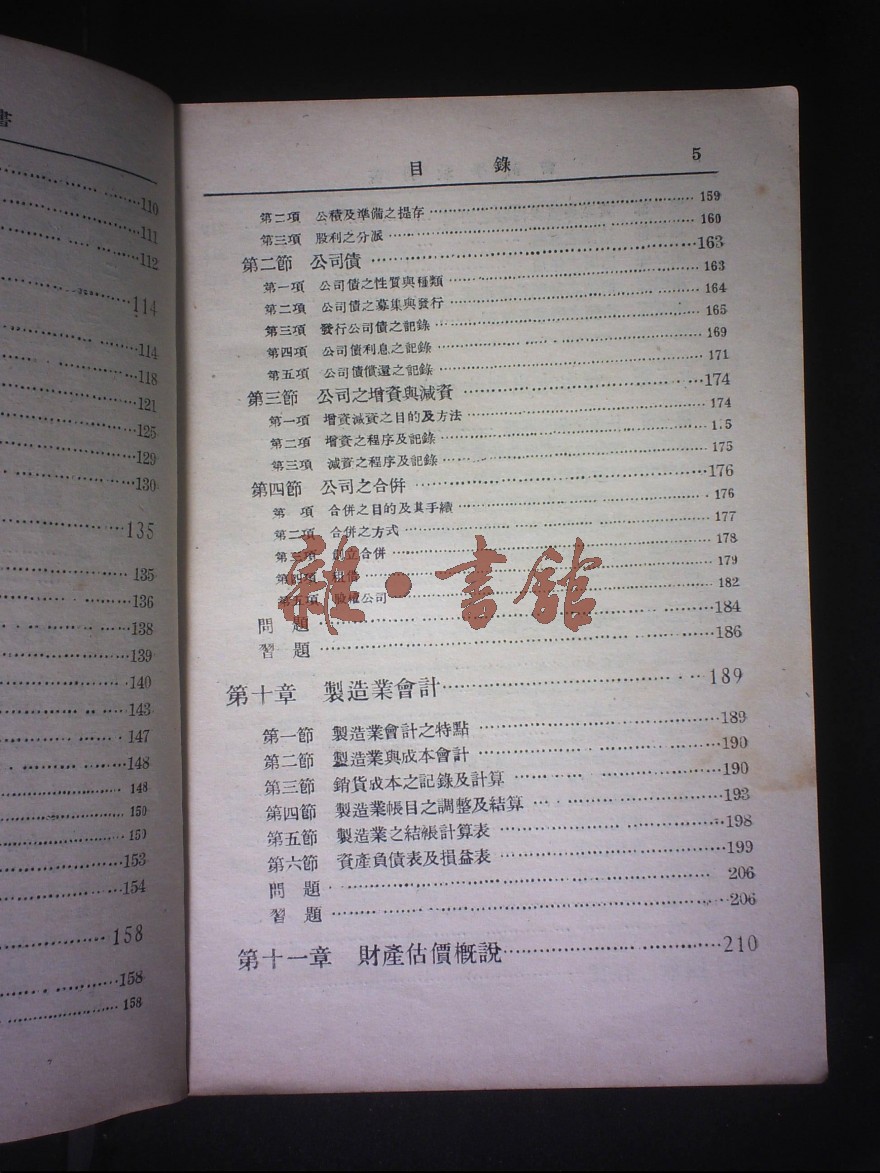 書
110
111
112
114
114
118
121
125
129
130
135
135
136
138
139
140
143
147
148
148
150
150
153
154
158
158
158
目 錄 5
第二項 公積及準備之提存 159
第三項 股利之分派 160
第二節 公司債 163
第一項 公司債之性質與種類 163
第二項 公司債之募集與發行 164
第三項 發行公司債之記錄 165
第四項 公司債利息之記錄 169
第五項 公司債償還之記錄 171
第三節 公司之增資與減資 174
第一項 增資減資之目的及方法 174
第二項 增資之程序及記錄 1.5
第三項 減資之程序及記錄 175
第四節 公司之合併 176
第 項 合併之目的及其手續 176
第二項 合併之方式 177
第三項 創立合併 178
第四項 租借 179
第五項 股權公司 182
問題 184
習題 186
第十章 製造業會計 189
第一節 製造業會計之特點 189
第二節 製造業與成本會計 190
第三節 銷貨成本之記錄及計算 190
第四節 製造業帳目之調整及結算 193
第五節 製造業之結帳計算表 198
第六節 資產負債表及損益表 199
問題 206
習題 206
第十一章 財產估價概說 210
雜·書館